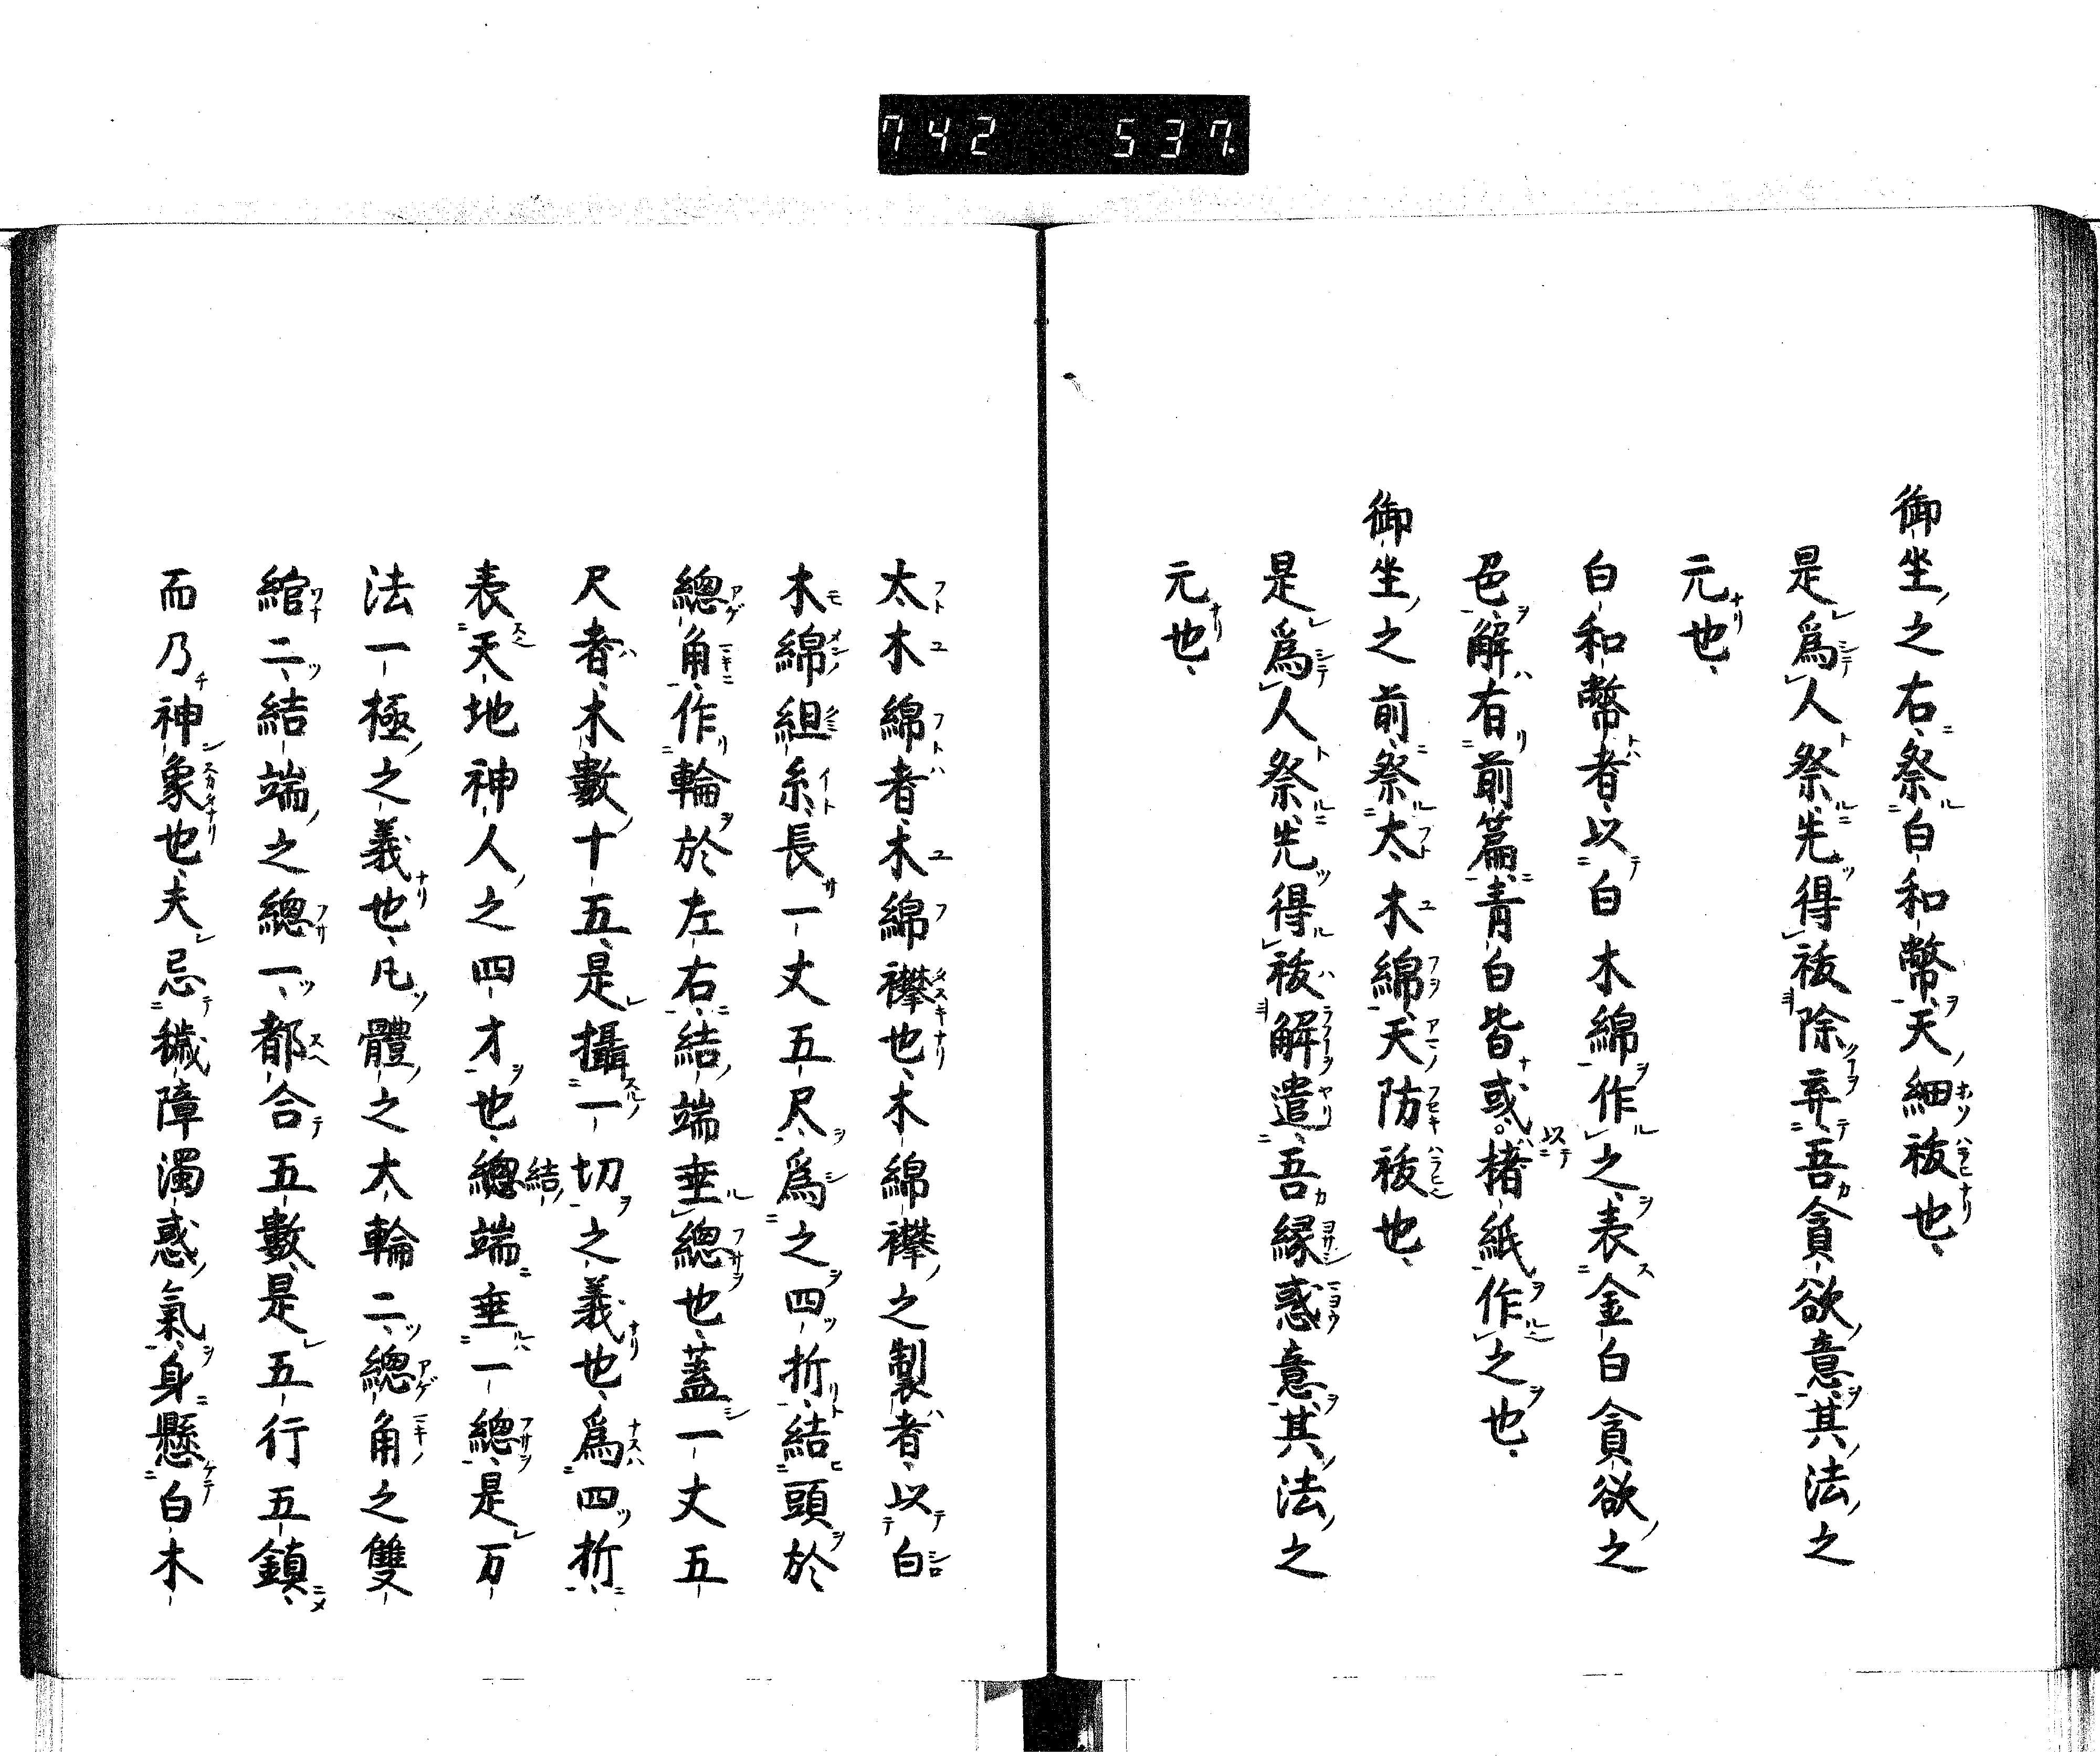 742 537.
御坐之右祭白和幣天細祓也
是爲人祭先得祓除弃吾貪欲意其法之
元也
白和幣者以白木綿作之表金白貪欲之
色解有前篇青白皆或以楮紙作之也
御坐之前祭太木綿天防祓也
是爲人祭先得祓解遣吾縁惑意其法之
元也
太木綿者木綿襷也木綿襷之製者以白
木綿組糸長一丈五尺爲之四折結頭於
總角作輪於左右結端垂總也蓋一丈五
尺者木數十五是攝一切之義也爲四折
表天地神人之四才也總結端垂一總是万
法一極之義也凡體之大輪二總角之雙
綰二結端之總一都合五數是五行五鎮
而乃神象也夫忌穢障濁惑氣身懸白木